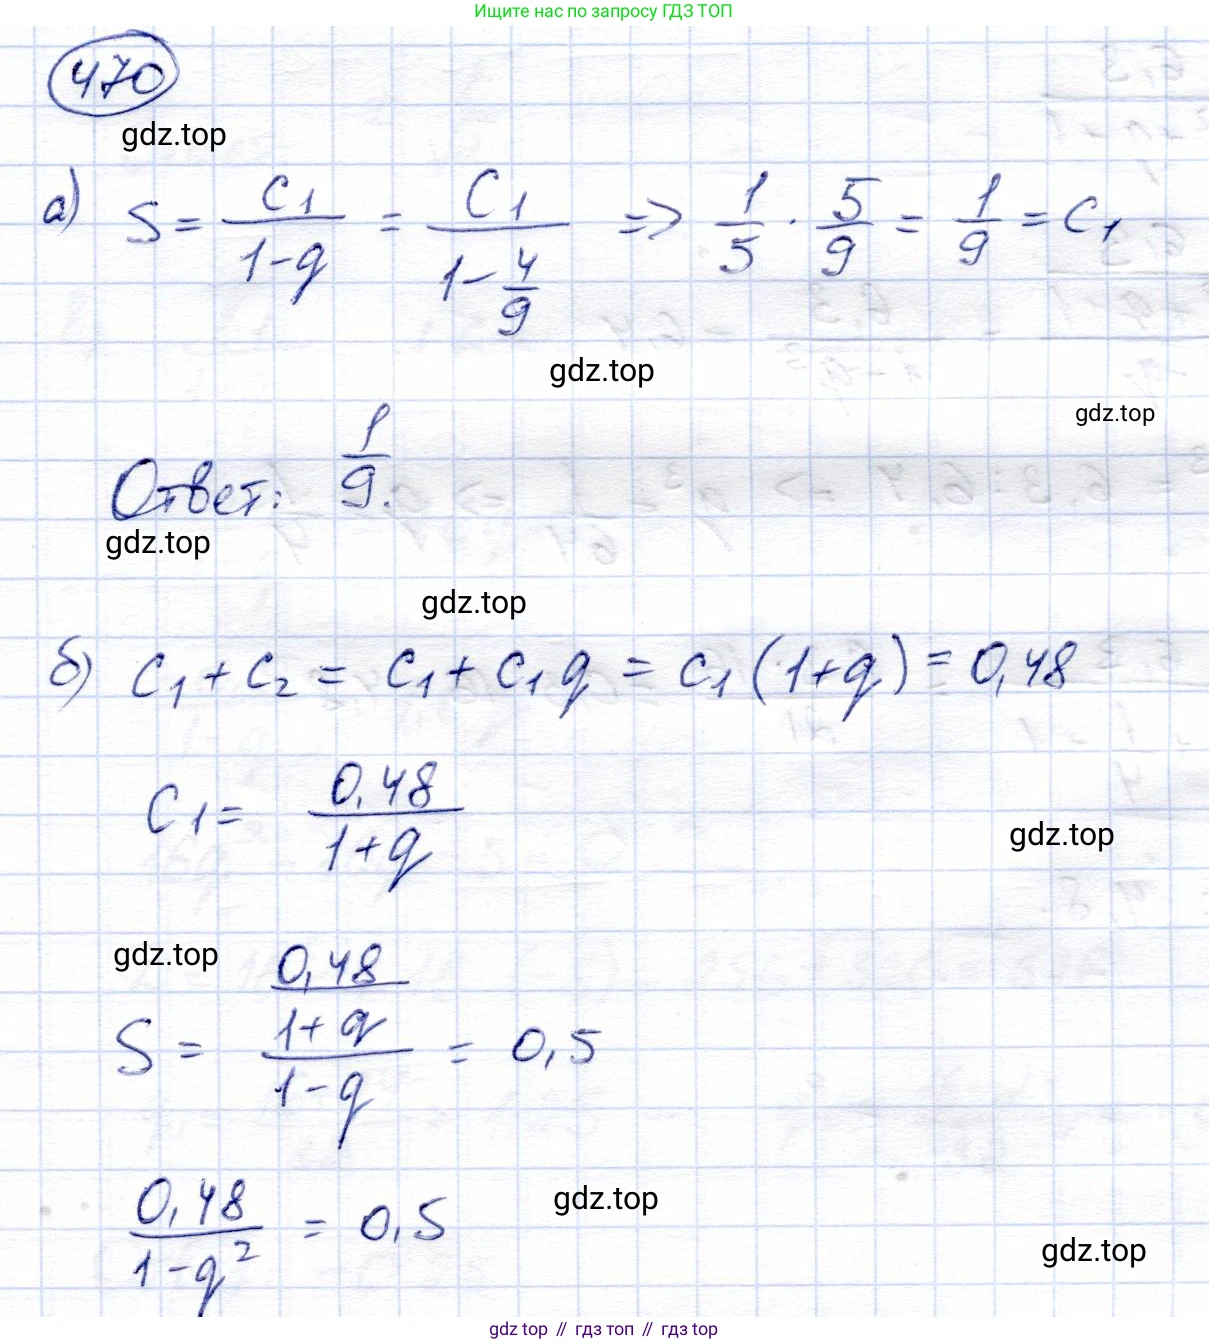 Ищите нас по запросу ГДЗ ТОП
470
gdz.top
а) S = c₁/(1-q) = c₁/(1-4/9) => 1/5 · 5/9 = 1/9 = c₁
gdz.top
gdz.top
Ответ: 1/9.
gdz.top
gdz.top
б) c₁ + c₂ = c₁ + c₁q = c₁(1+q) = 0,48
c₁ = 0,48/(1+q)
gdz.top
gdz.top
S = (0,48/(1+q))/(1-q) = 0,5
0,48/(1-q²) = 0,5
gdz.top
gdz.top
gdz top // гдз топ // гдз top